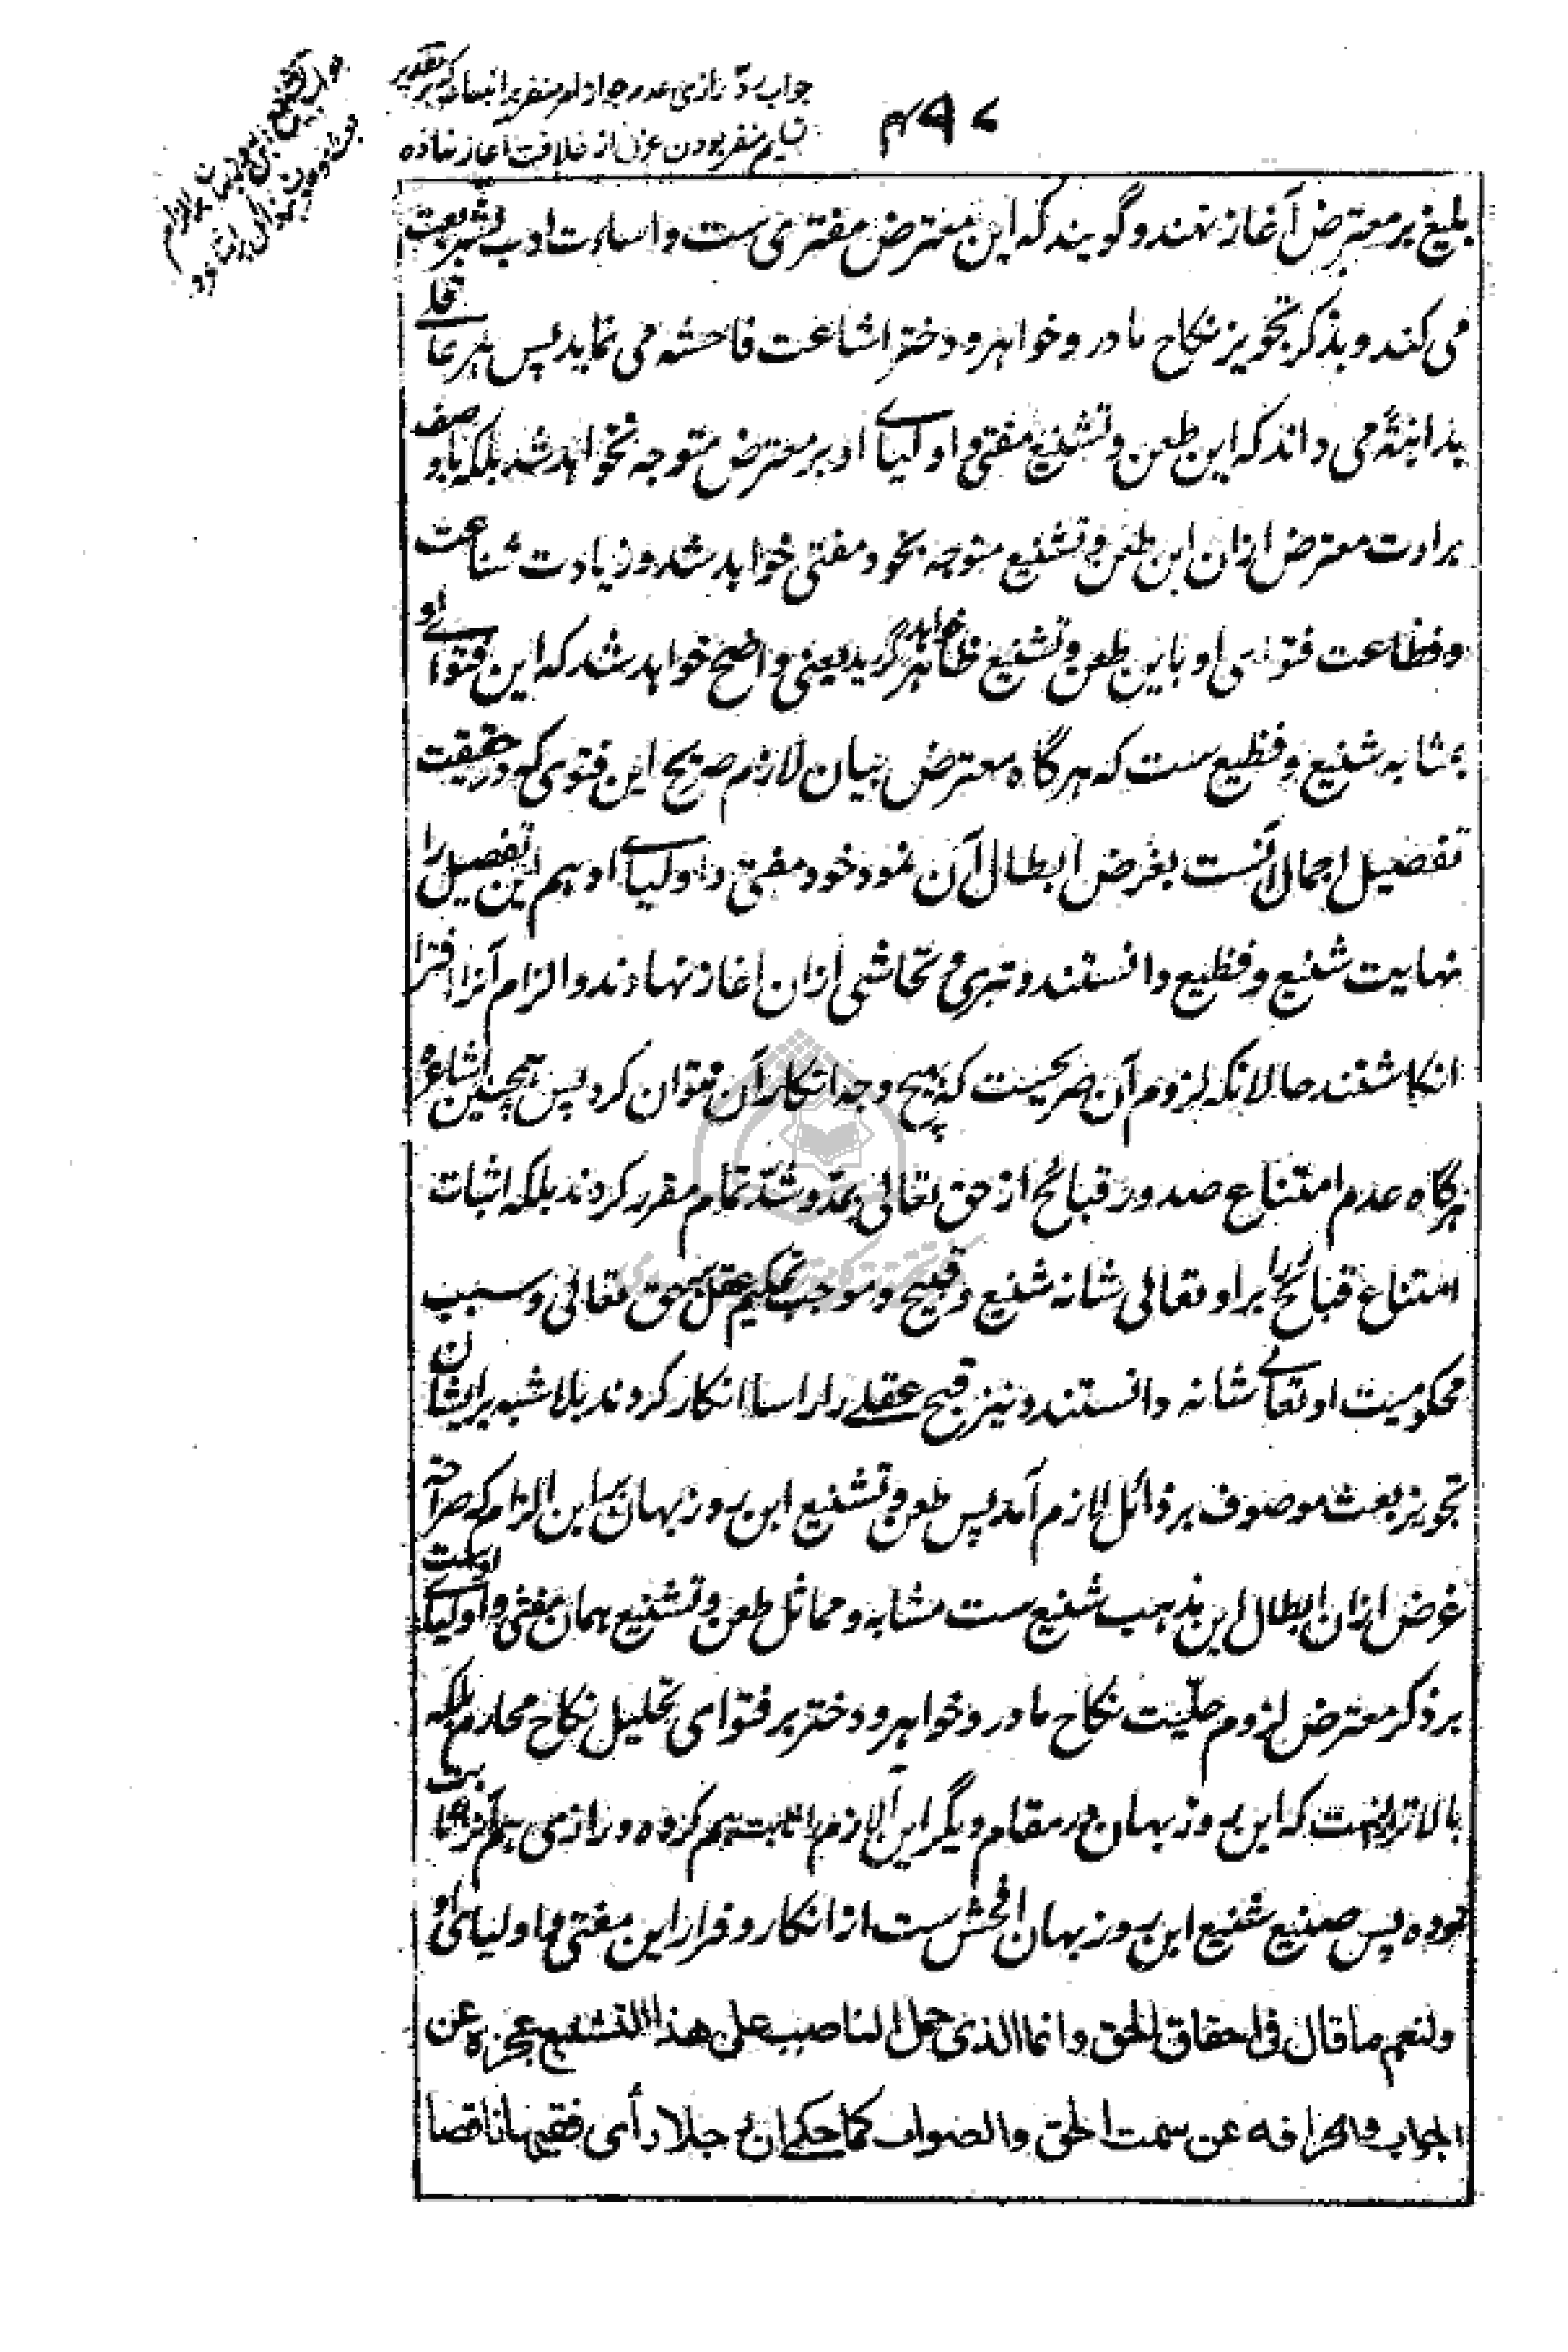 ۴۹۷
جواب رد رازی عدم جواز امر منفر بر انبیا که بر تقدیر
تسلیم منفر بودن عزل از خلافت آغاز نهاده
بلیغ بر معترض آغاز نهند و گویند که این معترض مفتری ست و اساءت ادب بشریعت
می کند و بذکر تجویز نکاح مادر و خواهر و دختر اشاعت فاحشه می نماید پس هر عاقلے
بداهةً می داند که این طعن و تشنیع مفتی و اولیاے او بر معترض متوجه نخواهد شد بلکه با وصف
براءت معترض ازان این طعن و تشنیع متوجه بخود مفتی خواهد شد و زیادت شناعت
و فظاعت فتوای او باین طعن و تشنیع ظاهر خواهد گردید یعنی واضح خواهد شد که این فتواے او
بمثابه شنیع و فظیع ست که هرگاه معترض بیان لازم صریح این فتوی که در حقیقت
تفصیل اجمال آنست بغرض ابطال آن نمود خود مفتی و اولیاے او هم این تفصیل را
نهایت شنیع و فظیع دانستند و تبری و تحاشی ازان اغاز نهادند و الزام آنرا افترا
انکاشتند حالانکه لزوم آن صریحیست که بهیچ وجه انکار آن نتوان کرد پس همچنین اشاعره
هرگاه عدم امتناع صدور قبائح از حق تعالی بمدّ و شدّ تمام مقرر کردند بلکه اثبات
امتناع قبائح را بر او تعالی شانه شنیع و قبیح و موجب تحکیم عقل بر حق تعالی و سبب
محکومیت او تعالے شانه دانستند و نیز قبح عقلے را راسا انکار کردند بلا شبه بر ایشان
تجویز بعث موصوف برذائل لازم آمد پس طعن و تشنیع ابن روزبهان بر این الزام که صراحةً
غرض ازان ابطال این مذهب شنیع ست مشابه و مماثل طعن و تشنیع همان مفتی و اولیاے اوست
بر ذکر معترض لزوم حلّیت نکاح مادر و خواهر و دختر بر فتوای تحلیل نکاح محارم بلکه
بالاتر اینست که ابن روزبهان در مقام دیگر این لازم را ثابت هم کرده و رازی هم آنرا ثابت
نموده پس صنیع شنیع ابن روزبهان افحش ست از انکار و فرار این مفتی و اولیای او
ولنعم ما قال فی احقاق الحق وانما الذی حمل الناصب علی هذا التشنیع عجزه عن
الجواب وانحرافه عن سمت الحق والصواب کما حکے ان رجلا رأی فقیها ناقصا